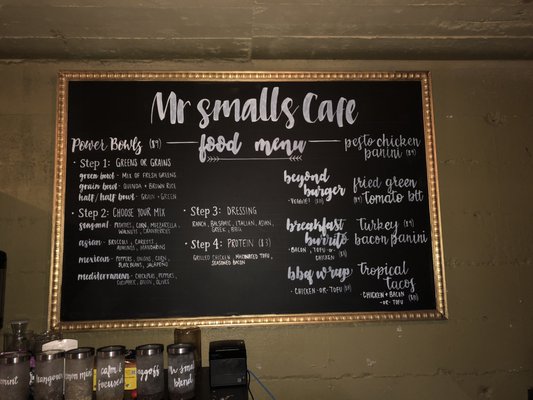 Mr Smalls Cafe
food menu
Power Bowls ($9)
• Step 1: Greens or Grains
green bowl - mix of fresh greens
grain bowl - quinoa + brown rice
half/half bowl - grain + green
• Step 2: Choose your mix
seasonal - potatoes, corn, mozzarella,
walnuts, cranberries
asian - broccoli, carrots,
almonds, mandarins
mexican - peppers, onions, corn,
black beans, jalapeño
mediterranean - chickpeas, peppers,
cucumber, onion, olives
• Step 3: Dressing
ranch, balsamic, italian, asian,
greek, bbq
• Step 4: Protein ($3)
grilled chicken, marinated tofu,
seasoned bacon
beyond
burger
- veggie!
breakfast
burrito
- bacon, tofu - or -
chicken
bbq wrap
- chicken - or - tofu
pesto chicken
panini
fried green
tomato blt
Turkey
bacon panini
Tropical
tacos
- chicken + bacon
- or - tofu
mint
hangover
lemon mint
calm &
focused
eggoff
mr smalls
blend